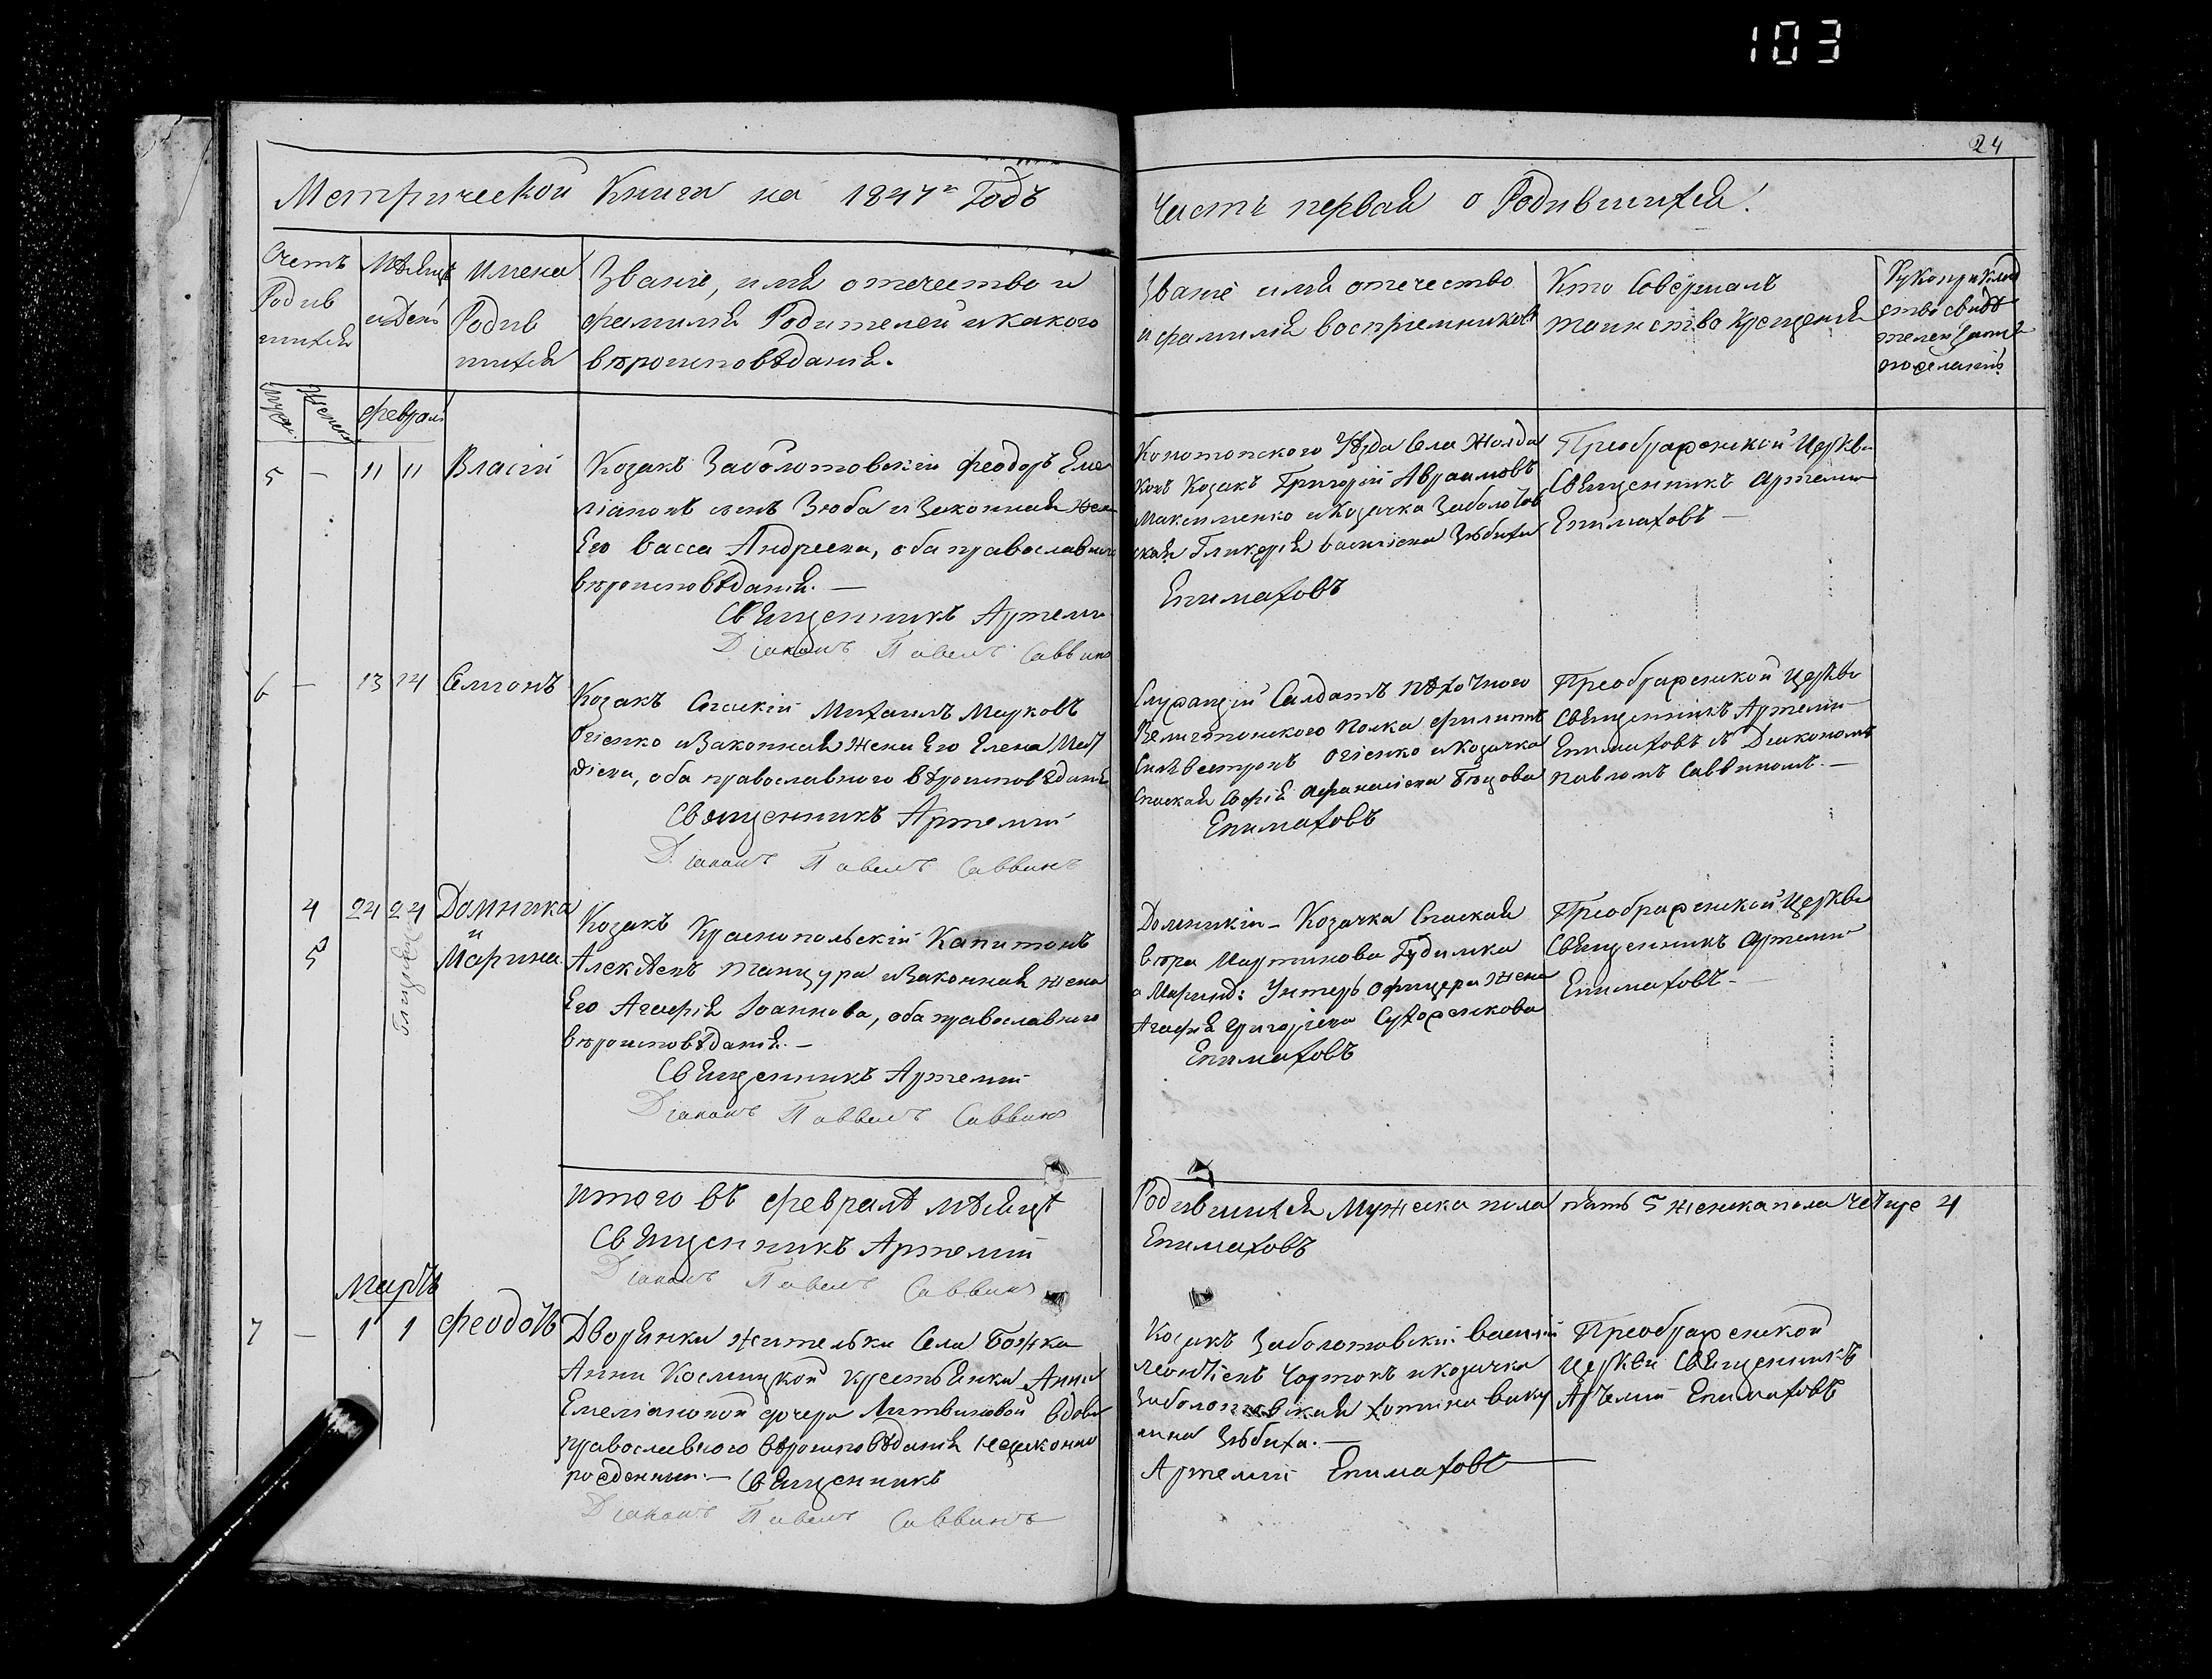 103
24
Метрической Книги на 1847й Годъ
Часть первая о Родившихся.
Счетъ
Родив
шихся
Мѣсяцъ
и День
Имена
Родив
шихся
Званіе, имя отечество и
фамилія Родителей и какого
вѣроисповѣданія.
Званіе имя отечество
и фамилія воспріемниковъ
Кто Совершалъ
таинство Крещенія
Рукоприклад
ство свидѣ
телей записи
по желанію
Февраль
5 — 11 11 Власій
Козакъ Заболотовскій Феодоръ Еме
ліановъ сынъ Зюба и Законная жена
Его Васса Андреева, оба православнаго
вѣроисповѣданія. —
Священникъ Артемій
Діаконъ Павелъ Саввинъ
Конотопского Уѣзда Села Жолда
ковъ Козакъ Григорій Авраамовъ
Максименко и Козачка Заболотов
ская Гликерія Васильева Зюбиха
Епимаховъ
Преображенской Церкви
Священникъ Артемій
Епимаховъ —
6 — 13 14 Симеонъ
Козакъ Спаскій Михаилъ Марковъ
Огіенко и Законная жена Его Елена Меѳ
одіева, оба православного вѣроисповѣданія
Священникъ Артемій
Діаконъ Павелъ Саввинъ
Служащій Салдатъ пѣхотного
полка Филиппъ
Силвестровъ Огіенко и козачка
Спаская Софія Афанасіева
Епимаховъ
Преображенской Церкви
Священникъ Артемій
Епимаховъ съ Діакономъ
Павломъ Саввиномъ. —
4 24 24 Домника
и
5 Марина
близнецы
Козакъ Краснопольскій Капитонъ
Алексѣевъ Танцура и Законная жена
Его Агафія Іоаннова, оба православного
вѣроисповѣданія. —
Священникъ Артемій
Діаконъ Павелъ Саввинъ
Домникіи — Козачка Спаская
Вѣра Мартинова Гудимка
а Маринѣ: Унтеръ офицера Жена
Агафія Григоріева
Епимаховъ
Преображенской Церкви
Священникъ Артемій
Епимаховъ —
итого въ февралѣ мѣсяцѣ
Родившихся Мужеска пола пять 5 женска пола четире 4
Священникъ Артемій
Епимаховъ
Діаконъ Павелъ Саввинъ
Мартъ
7 — 1 1 Феодотъ
Дворянки жительки Села Божка
Анны Космицкой крестьянки Анны
Емеліановой дочери Литвиновой вдовы
православного вѣроисповѣданія незаконно
рожденный. — Священникъ
Діаконъ Павелъ Саввинъ
Козакъ Заболотовскій Василій
Леонтіевъ Чортокъ и козачка
Заболотовская Хотина Ваку
лина Зюбиха. —
Артемій Епимаховъ
Преображенской
Церкви Священникъ
Артемій Епимаховъ